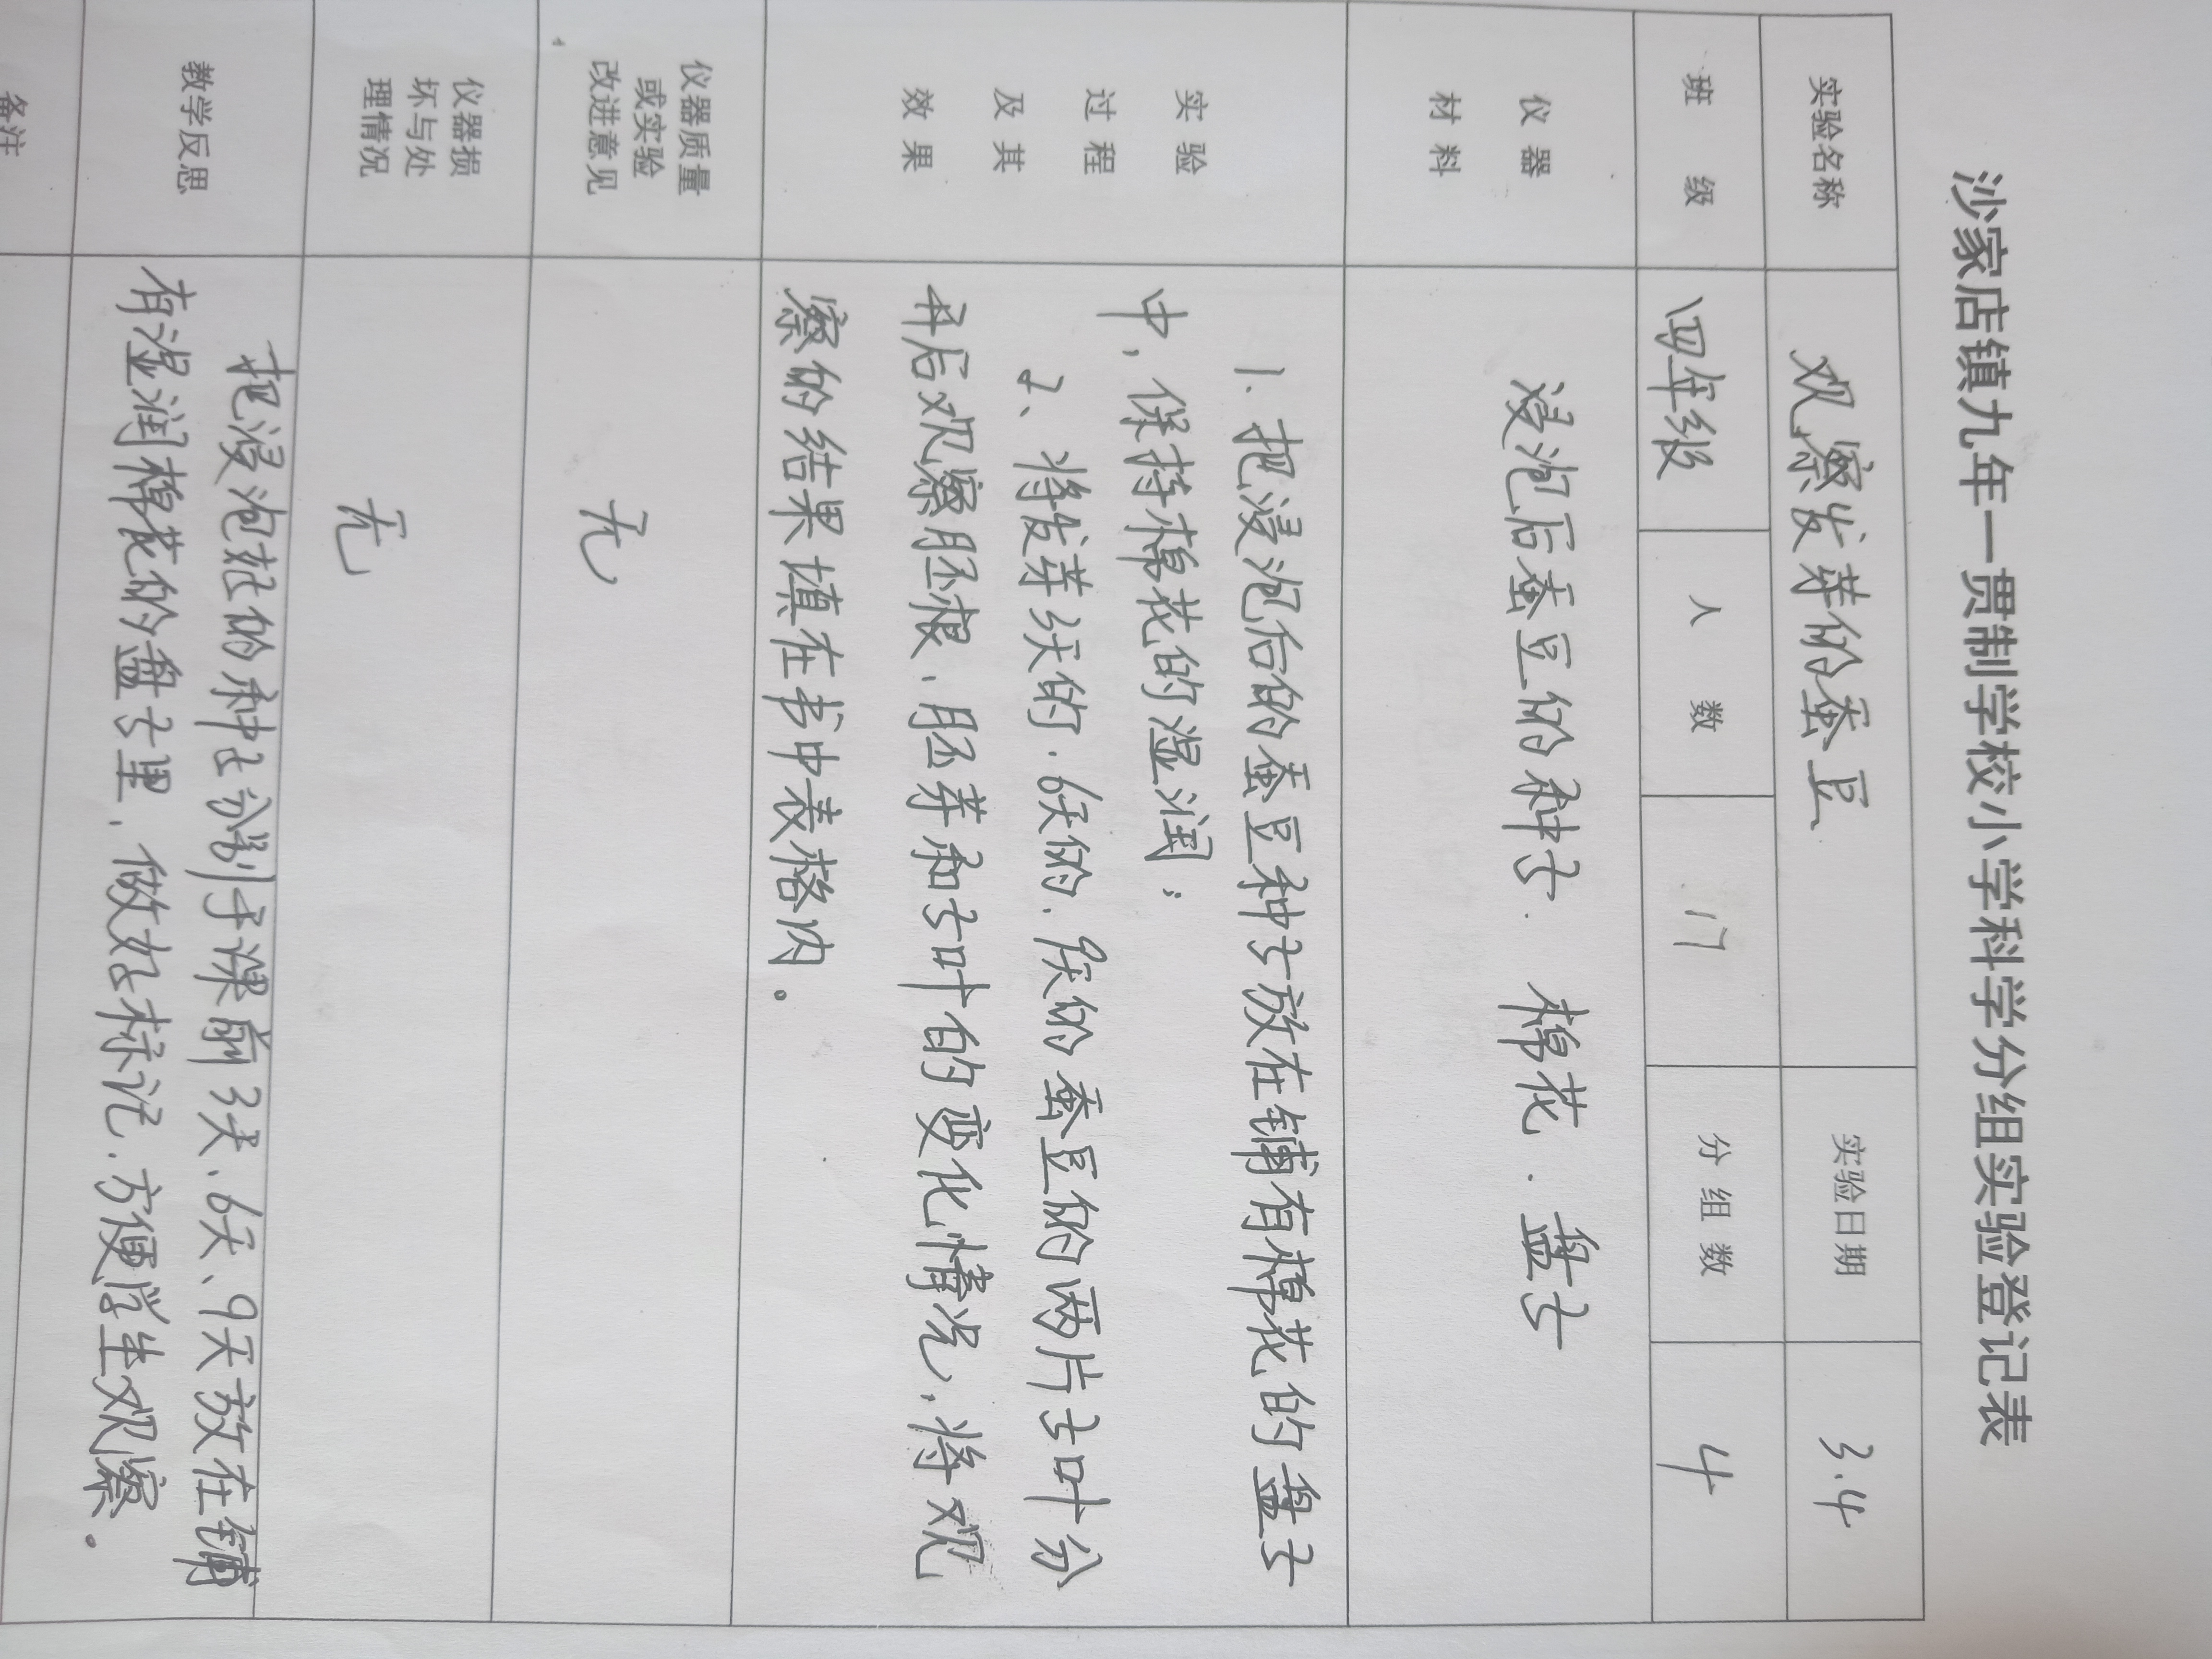 沙家店镇九年一贯制学校小学科学分组实验登记表
实验名称 观察发芽的蚕豆 实验日期 3.4
班级 四年级 人数 17 分组数 4
仪器材料 浸泡后蚕豆的种子、棉花、盘子
实验过程及其效果
1、把浸泡后的蚕豆种子放在铺有棉花的盘子
中，保持棉花的湿润；
2、将发芽3天的、6天的、9天的蚕豆的两片子叶分
开后观察胚根、胚芽和子叶的变化情况，将观
察的结果填在书中表格内。
仪器质量或实验改进意见 无
仪器损坏与处理情况 无
教学反思
把浸泡好的种子分别于课前3天、6天、9天放在铺
有湿润棉花的盘子里，做好标记，方便学生观察。
备注